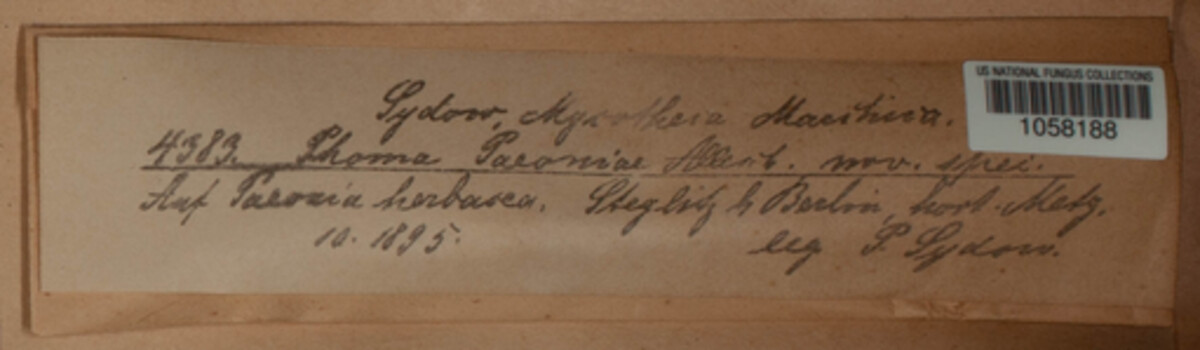 Sydow, Mycotheca Marchica.
4383. Phoma Paeoniae Allesch. nov. spec.
Auf Paeonia herbacea. Steglitz b Berlin, hort. Metz.
10. 1895.
leg P. Sydow.
US NATIONAL FUNGUS COLLECTIONS
1058188